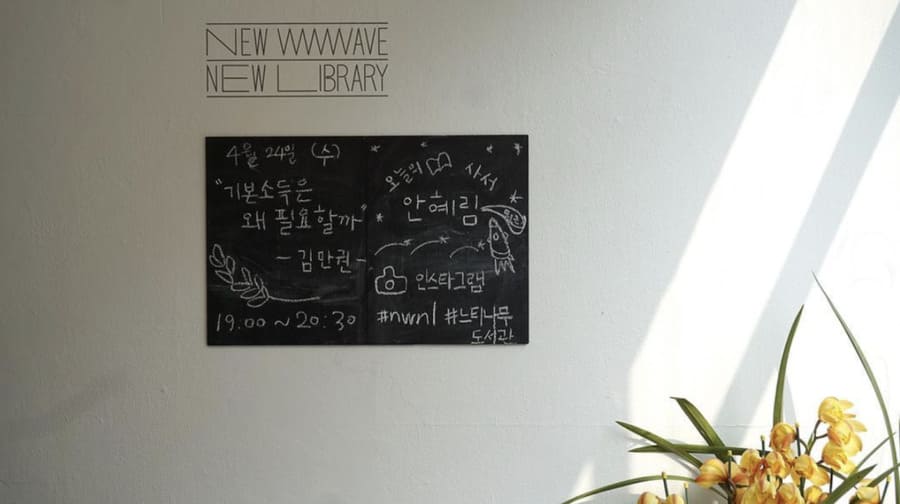 NEW WAVE
NEW LIBRARY
4월 24일 (수)
"기본소득은
왜 필요할까"
- 김만권 -
19:00 ~ 20:30
오늘의 사서
안혜림
인스타그램
#nwnl #느티나무
도서관